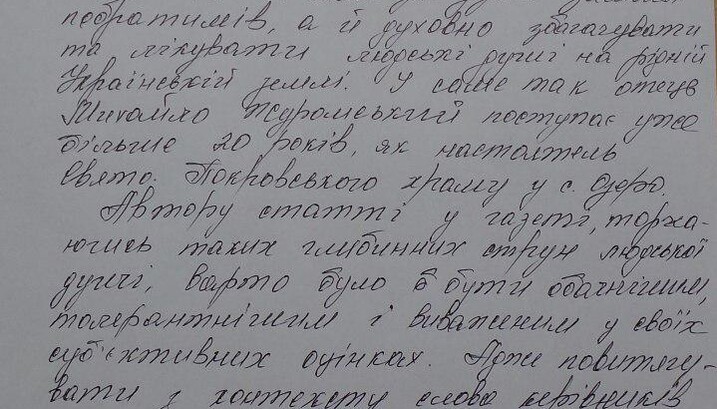 побратимів, а й духовно збагачувати
та лікувати людські душі на рідній
Українській землі. І саме так отець
Михайло Журомський поступає уже
більше 20 років, як настоятель
Свято. Покровського храму у с. Озеро.
Автору статті у газеті, торка-
ючись таких глибинних струн людської
душі, варто було б бути обачнішим,
толерантнішим і виваженим у своїх
суб'єктивних оцінках. Адже повитягу-
вати з контексту слова керівників